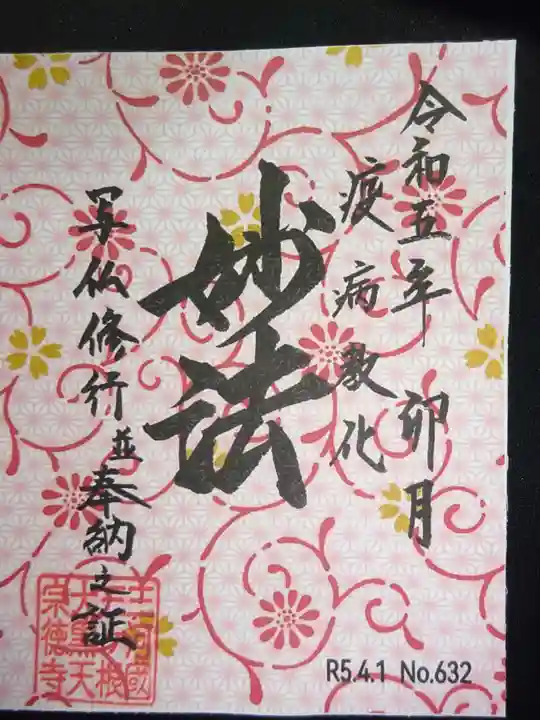 令和五年 卯月
疫病教化
妙法
写仏修行並奉納之証
大黒天
宗徳寺
R5.4.1 No.632